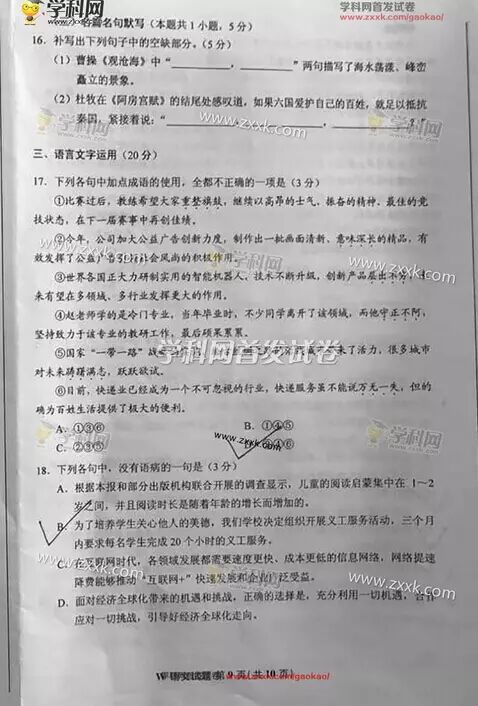 学科网
学科网首发试卷
www.zxxk.com/gaokao/
名篇名句默写（本题共1小题，5分）
16. 补写出下列句子中的空缺部分。（5分）
（1）曹操《观沧海》中“________，________”两句描写了海水荡漾、峰峦
矗立的景象。
（2）杜牧在《阿房宫赋》的结尾处感叹道，如果六国爱护自己的百姓，就足以抵抗
秦国，紧接着说：“________，________？”
三、语言文字运用（20分）
17. 下列各句中加点成语的使用，全都不正确的一项是（3分）
①比赛过后，教练希望大家重整旗鼓，继续以高昂的士气、振奋的精神、最佳的竞
技状态，在下一届赛事中再创佳绩。
②今年，公司加大公益广告创新力度，制作出一批画面清新、意味深长的精品，有
效发挥了公益广告引领社会风尚的积极作用。
③世界各国正大力研制实用的智能机器人，技术不断升级，创新产品层出不穷，未
来有望在多领域、多行业发挥更大的作用。
④赵老师学的是冷门专业，当年毕业时，不少同学离开了该领域，而他守正不阿，
坚持致力于该专业的教研工作，最后硕果累累。
⑤国家“一带一路”战
来了活力，很多城市
对未来踌躇满志，跃跃欲试。
⑥目前，快递业已经成为一个不可忽视的行业，快递服务虽不能说万无一失，但的
确为百姓生活提供了极大的便利。
A. ①③⑥
B. ①④⑤
C. ②③⑤
④⑥
18. 下列各句中，没有语病的一句是（3分）
A. 根据本报和部分出版机构联合开展的调查显示，儿童的阅读启蒙集中在1～2
岁之间，并且阅读时长是随着年龄的增长而增加的。
B. 为了培养学生关心他人的美德，我们学校决定组织开展义工服务活动，三个月
内要求每名学生完成20个小时的义工服务。
互联网时代，各领域发展都需要速度更快、成本更低的信息网络，网络提速
降费能够推动“互联网+”快速发展和企业广泛受益。
D. 面对经济全球化带来的机遇和挑战，正确的选择是，充分利用一切机遇，合作
应对一切挑战，引导好经济全球化走向。
语文试题 第9页（共10页）